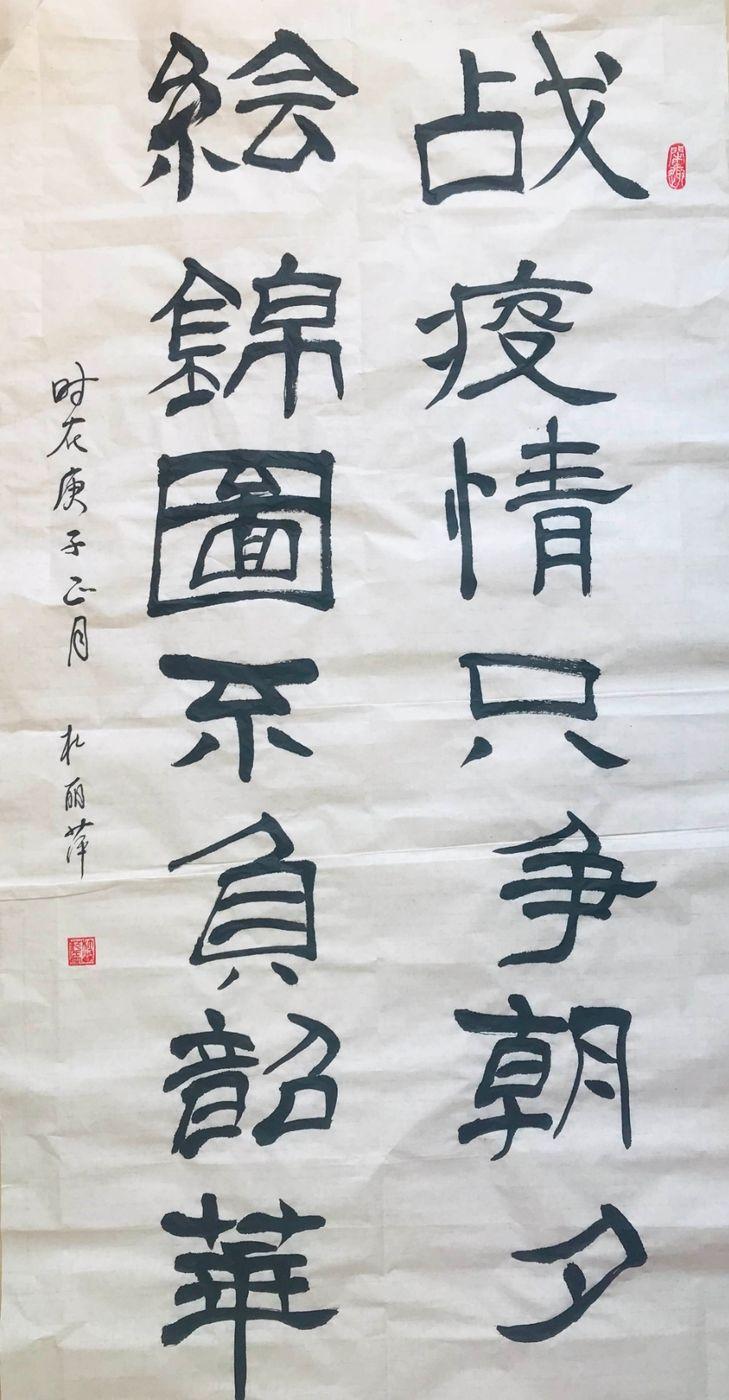 战疫情只争朝夕
絵錦圖不負韶華
时在庚子正月 杜丽萍